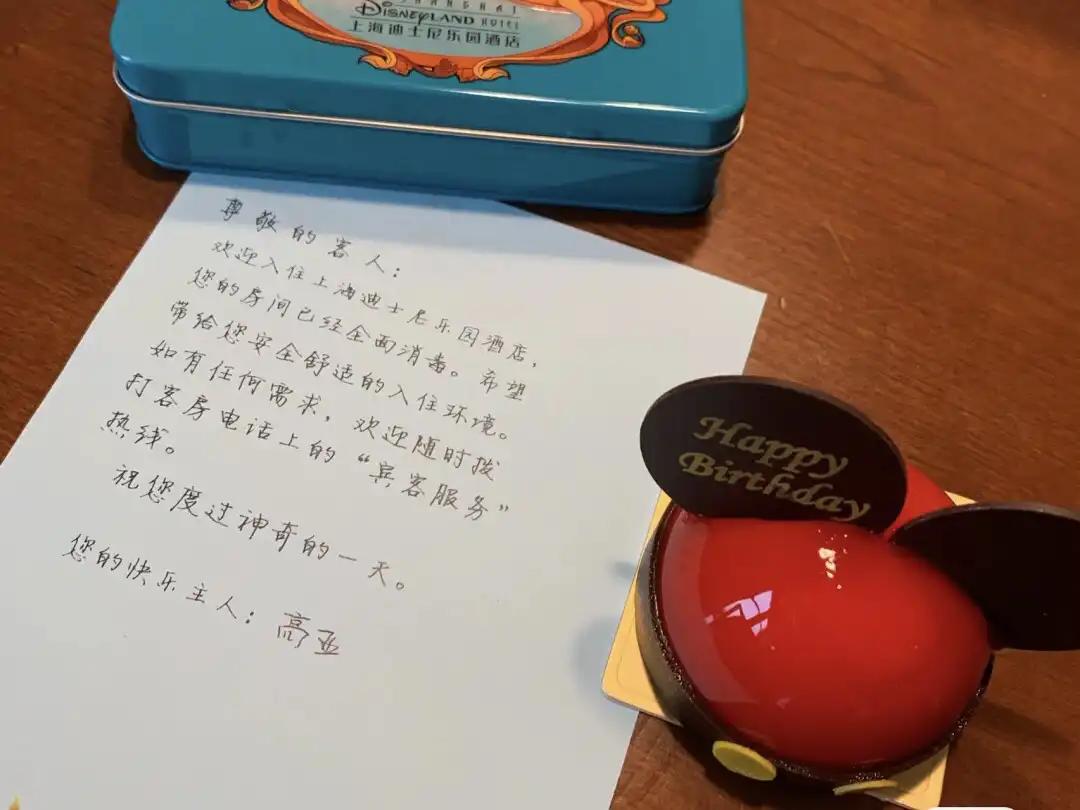 SHANGHAI
Disneyland HOTEL
上海迪士尼乐园酒店
尊敬的客人:
欢迎入住上海迪士尼乐园酒店,
您的房间已经全面消毒。希望
带给您安全舒适的入住环境。
如有任何需求,欢迎随时拨
打客房电话上的“宾客服务”
热线。
祝您度过神奇的一天。
您的快乐主人:高亚
Happy
Birthday